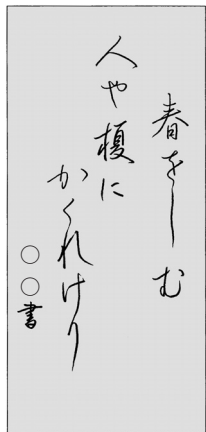 春をしむ
人や榎に
かくれけり
○○書